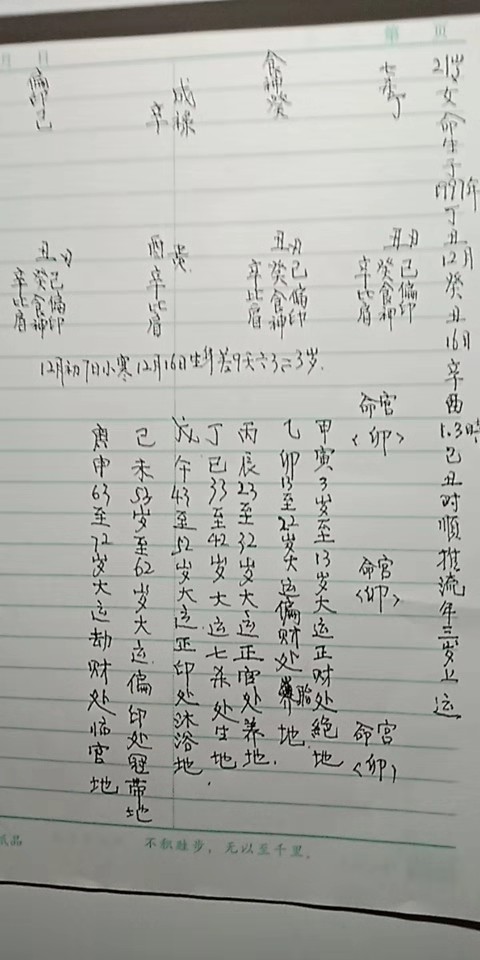 第 页
月 日
21岁女命生于1997年丁丑12月癸丑16日辛酉1.3时己丑时顺推流年三岁上运
七杀丁
食神癸
成禄
辛
偏印己
丑月
己偏印
癸食神
辛比肩
丑月
己偏印
癸食神
辛比肩
酉
辛比肩
丑月
己偏印
癸食神
辛比肩
12月初7日小寒12月16日生年差9天÷3=3岁.
命宫
<卯>
命宫
<卯>
命宫
<卯>
甲寅3岁至13岁大运正财处绝地
乙卯13至22岁大运偏财处胎地.
丙辰23至32岁大运正官处养地.
丁巳33至42岁大运七杀处生地.
戊午43至52岁大运正印处沐浴地
己未53岁至62岁大运偏印处冠带地
庚申63至72岁大运劫财处临官地
纸品
不积跬步,无以至千里.